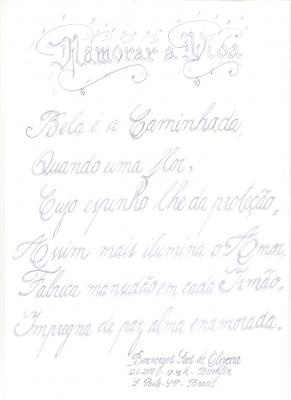 Namorar a Vida
Bela é a Caminhada,
Quando uma flor,
Cujo espinho lhe da proteção,
Assim mais ilumina o Amor,
Fabrica mansidão em cada Irmão,
Impregna de paz alma enamorada.
de Oliveira
S. Paulo - SP - Brasil